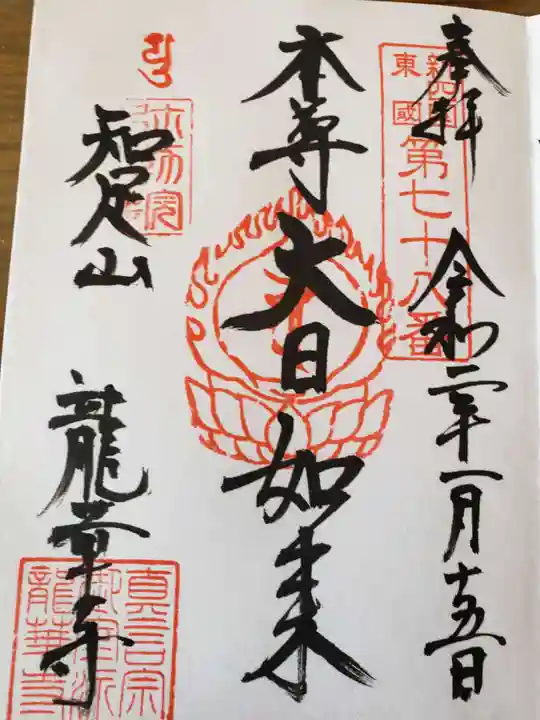 奉拝
令和二年一月十五日
新四国
東国
第七十八番
本尊
大日如来
知足山
龍華寺
真言宗
御室派
龍華寺